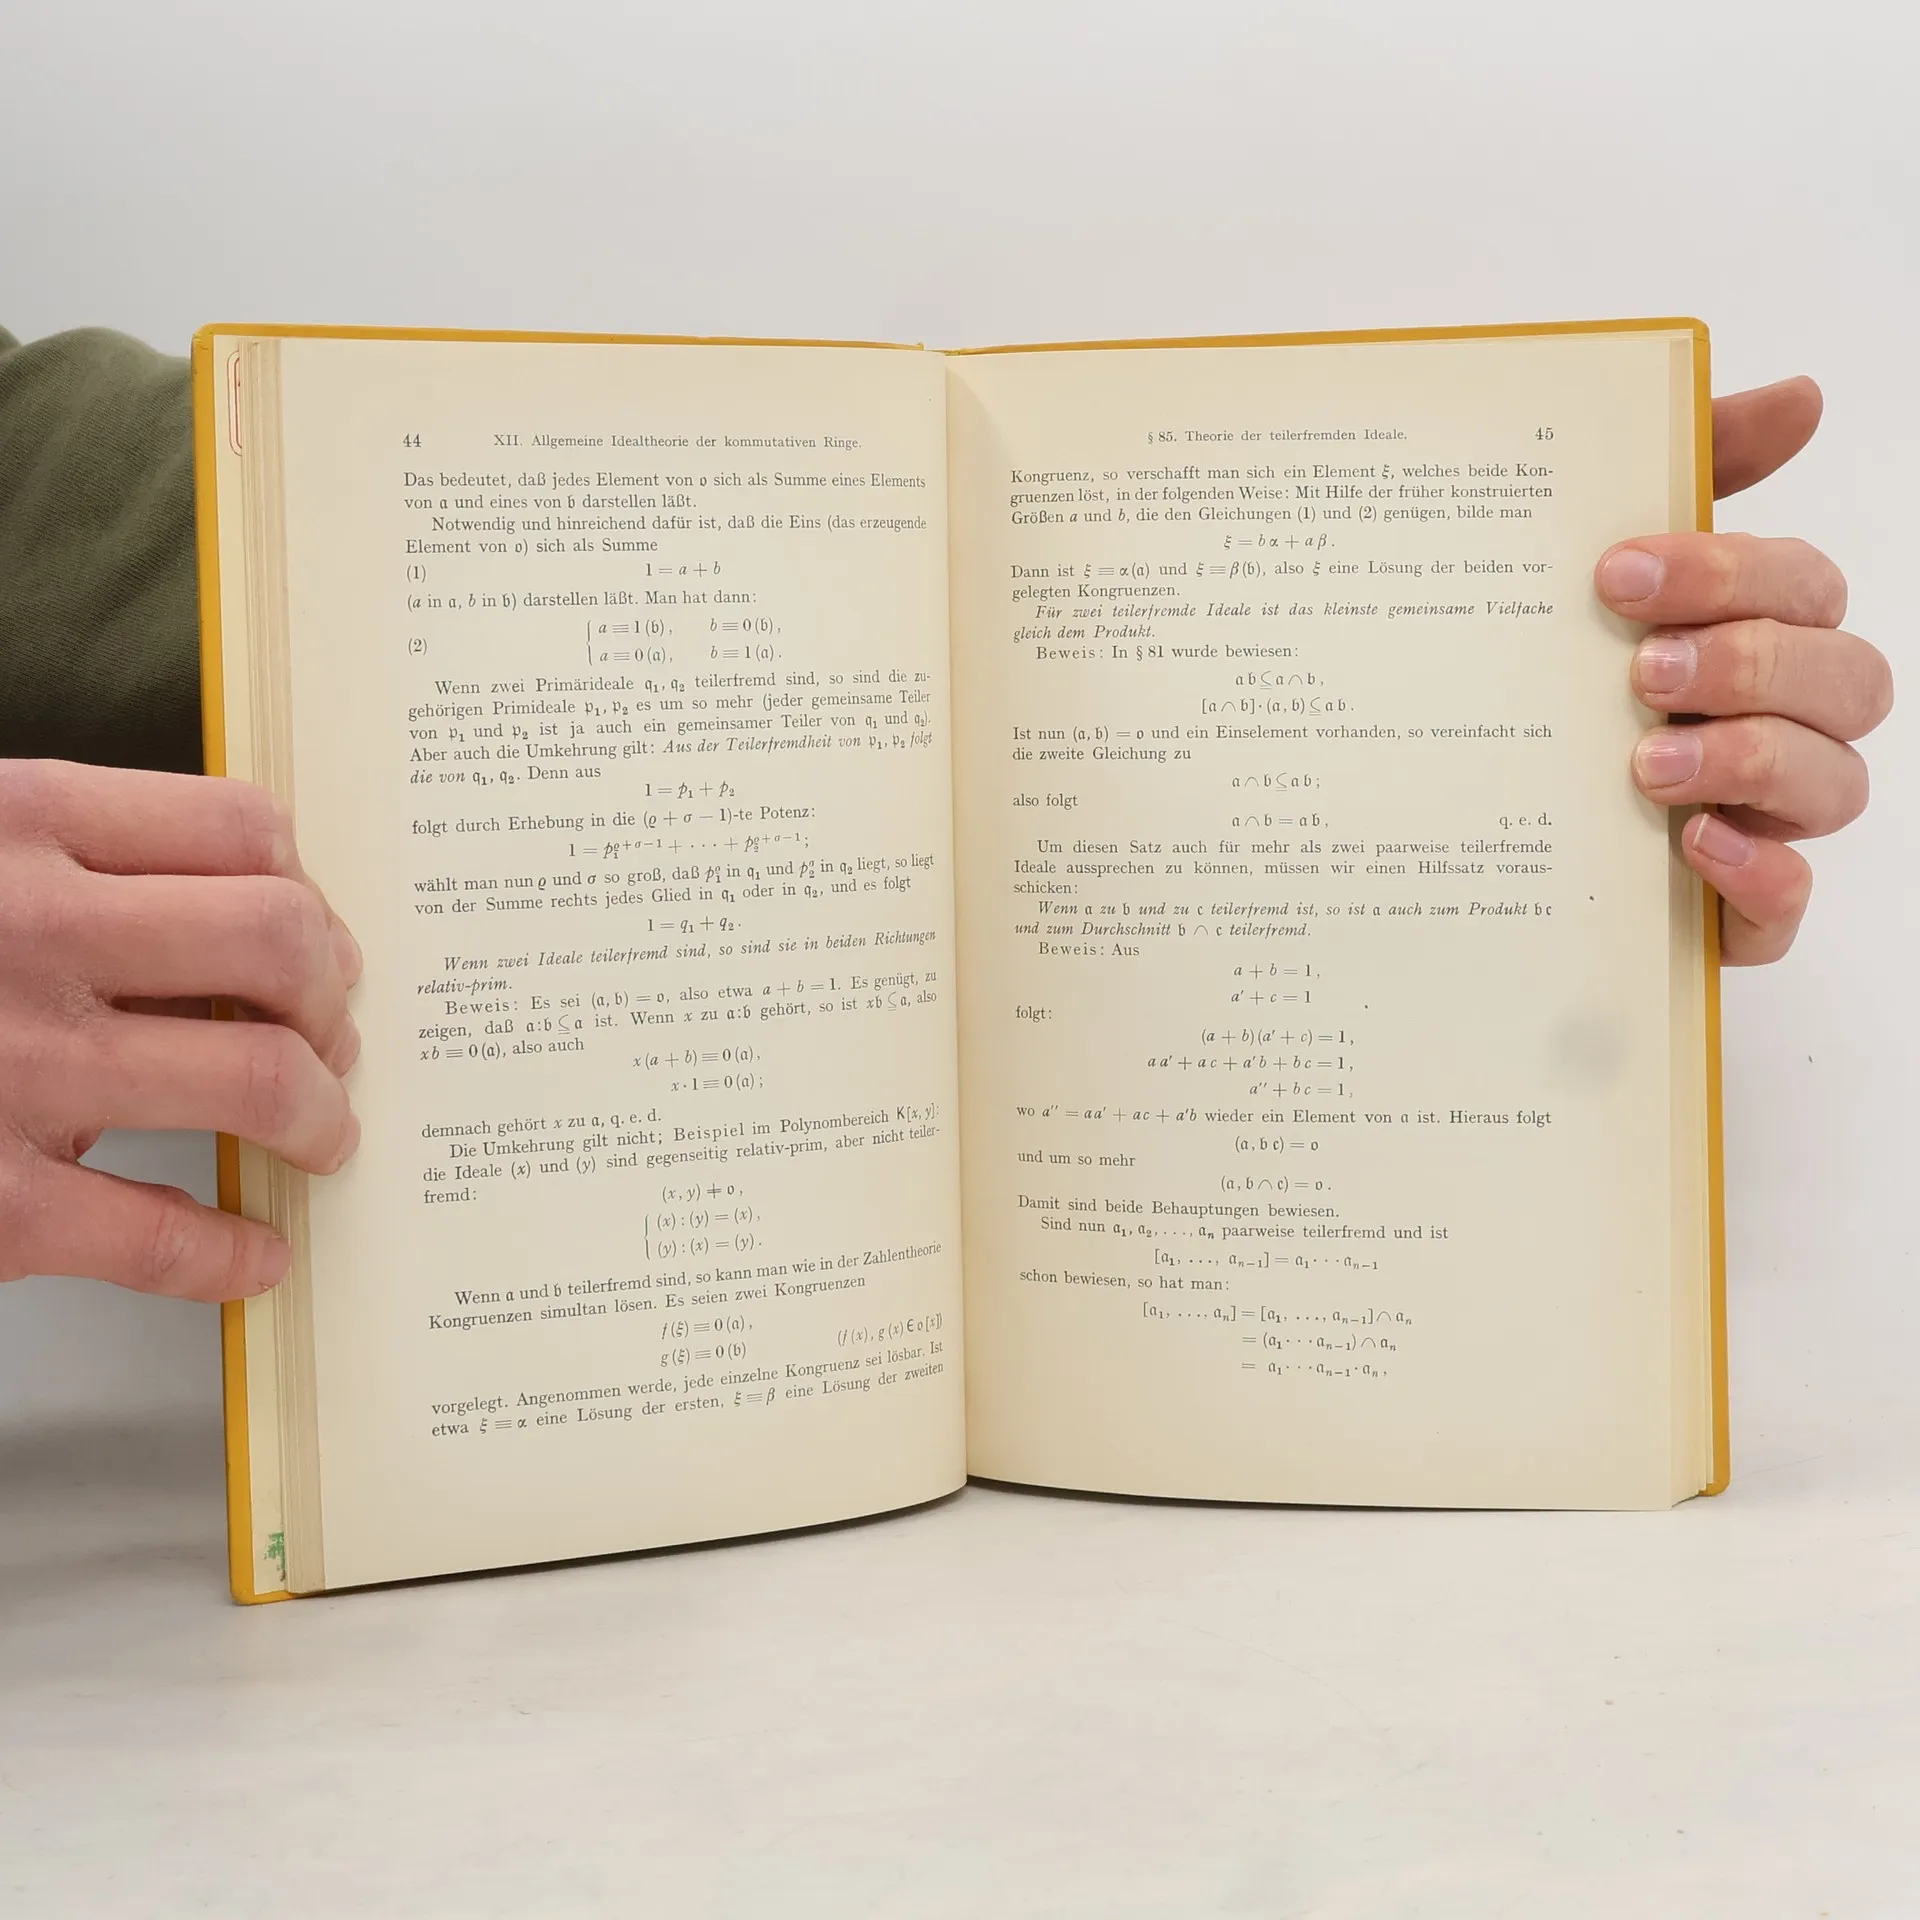 44 XII. Allgemeine Idealtheorie der kommutativen Ringe.
Das bedeutet, daß jedes Element von 𝔬 sich als Summe eines Elements
von 𝔞 und eines von 𝔟 darstellen läßt.
Notwendig und hinreichend dafür ist, daß die Eins (das erzeugende
Element von 𝔬) sich als Summe
(1) 1 = a + b
(a in 𝔞, b in 𝔟) darstellen läßt. Man hat dann:
a ≡ 1 (𝔟), b ≡ 0 (𝔟),
(2)
a ≡ 0 (𝔞), b ≡ 1 (𝔞).
Wenn zwei Primärideale 𝔮₁, 𝔮₂ teilerfremd sind, so sind die zu-
gehörigen Primideale 𝔭₁, 𝔭₂ es um so mehr (jeder gemeinsame Teiler
von 𝔭₁ und 𝔭₂ ist ja auch ein gemeinsamer Teiler von 𝔮₁ und 𝔮₂).
Aber auch die Umkehrung gilt: Aus der Teilerfremdheit von 𝔭₁, 𝔭₂ folgt
die von 𝔮₁, 𝔮₂. Denn aus
1 = p₁ + p₂
folgt durch Erhebung in die (ϱ + σ − 1)-te Potenz:
1 = p₁^{ϱ+σ−1} + · · · + p₂^{ϱ+σ−1};
wählt man nun ϱ und σ so groß, daß p₁^ϱ in 𝔮₁ und p₂^σ in 𝔮₂ liegt, so liegt
von der Summe rechts jedes Glied in 𝔮₁ oder in 𝔮₂, und es folgt
1 = q₁ + q₂.
Wenn zwei Ideale teilerfremd sind, so sind sie in beiden Richtungen
relativ-prim.
Beweis: Es sei (𝔞, 𝔟) = 𝔬, also etwa a + b = 1. Es genügt, zu
zeigen, daß 𝔞:𝔟 ⊆ 𝔞 ist. Wenn x zu 𝔞:𝔟 gehört, so ist x𝔟 ⊆ 𝔞, also
xb ≡ 0 (𝔞), also auch
x (a + b) ≡ 0 (𝔞),
x · 1 ≡ 0 (𝔞);
demnach gehört x zu 𝔞, q. e. d.
Die Umkehrung gilt nicht; Beispiel im Polynombereich K[x, y]:
die Ideale (x) und (y) sind gegenseitig relativ-prim, aber nicht teiler-
fremd:
(x, y) ≠ 𝔬,
(x) : (y) = (x),
(y) : (x) = (y).
Wenn 𝔞 und 𝔟 teilerfremd sind, so kann man wie in der Zahlentheorie
Kongruenzen simultan lösen. Es seien zwei Kongruenzen
f (ξ) ≡ 0 (𝔞),
g (ξ) ≡ 0 (𝔟) (f (x), g (x) ∈ 𝔬 [x])
vorgelegt. Angenommen werde, jede einzelne Kongruenz sei lösbar. Ist
etwa ξ ≡ α eine Lösung der ersten, ξ ≡ β eine Lösung der zweiten
§ 85. Theorie der teilerfremden Ideale. 45
Kongruenz, so verschafft man sich ein Element ξ, welches beide Kon-
gruenzen löst, in der folgenden Weise: Mit Hilfe der früher konstruierten
Größen a und b, die den Gleichungen (1) und (2) genügen, bilde man
ξ = b α + a β.
Dann ist ξ ≡ α (𝔞) und ξ ≡ β (𝔟), also ξ eine Lösung der beiden vor-
gelegten Kongruenzen.
Für zwei teilerfremde Ideale ist das kleinste gemeinsame Vielfache
gleich dem Produkt.
Beweis: In § 81 wurde bewiesen:
𝔞 𝔟 ⊆ 𝔞 ∩ 𝔟,
[𝔞 ∩ 𝔟] · (𝔞, 𝔟) ⊆ 𝔞 𝔟.
Ist nun (𝔞, 𝔟) = 𝔬 und ein Einselement vorhanden, so vereinfacht sich
die zweite Gleichung zu
𝔞 ∩ 𝔟 ⊆ 𝔞 𝔟;
also folgt
𝔞 ∩ 𝔟 = 𝔞 𝔟, q. e. d.
Um diesen Satz auch für mehr als zwei paarweise teilerfremde
Ideale aussprechen zu können, müssen wir einen Hilfssatz voraus-
schicken:
Wenn 𝔞 zu 𝔟 und zu 𝔠 teilerfremd ist, so ist 𝔞 auch zum Produkt 𝔟 𝔠
und zum Durchschnitt 𝔟 ∩ 𝔠 teilerfremd.
Beweis: Aus
a + b = 1,
a′ + c = 1
folgt:
(a + b) (a′ + c) = 1,
a a′ + a c + a′ b + b c = 1,
a″ + b c = 1,
wo a″ = aa′ + ac + a′b wieder ein Element von 𝔞 ist. Hieraus folgt
(𝔞, 𝔟 𝔠) = 𝔬
und um so mehr
(𝔞, 𝔟 ∩ 𝔠) = 𝔬.
Damit sind beide Behauptungen bewiesen.
Sind nun 𝔞₁, 𝔞₂, . . ., 𝔞ₙ paarweise teilerfremd und ist
[𝔞₁, . . ., 𝔞ₙ₋₁] = 𝔞₁ · · · 𝔞ₙ₋₁
schon bewiesen, so hat man:
[𝔞₁, . . ., 𝔞ₙ] = [𝔞₁, . . ., 𝔞ₙ₋₁] ∩ 𝔞ₙ
= (𝔞₁ · · · 𝔞ₙ₋₁) ∩ 𝔞ₙ
= 𝔞₁ · · · 𝔞ₙ₋₁ · 𝔞ₙ,